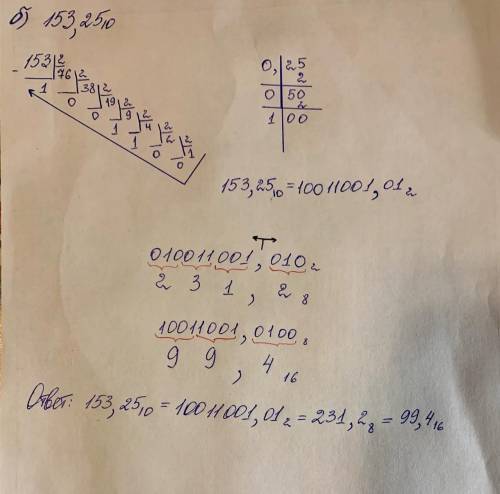 б) 153,25₁₀
- 153 | 2
1 76 | 2
0 38 | 2
0 19 | 2
1 9 | 2
1 4 | 2
0 2 | 2
0 1
0, | 25
2
0 | 50
2
1 | 00
153,25₁₀ = 10011001,01₂
010011001,010₂
2 3 1, 2₈
10011001,0100₈
9 9, 4₁₆
Ответ: 153,25₁₀ = 10011001,01₂ = 231,2₈ = 99,4₁₆